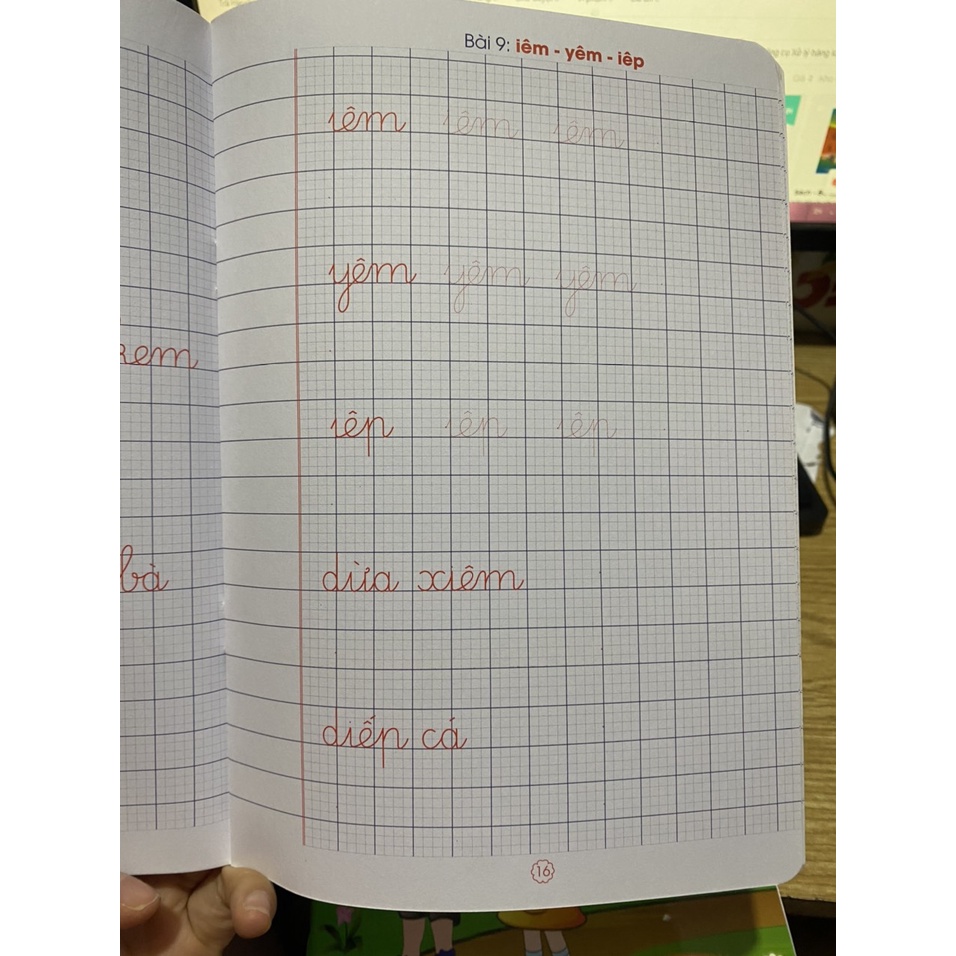 Bài 9: iêm - yêm - iêp
iêm iêm iêm
yêm yêm yêm
kem
iêp iêp iêp
bà
dừa xiêm
diếp cá
16